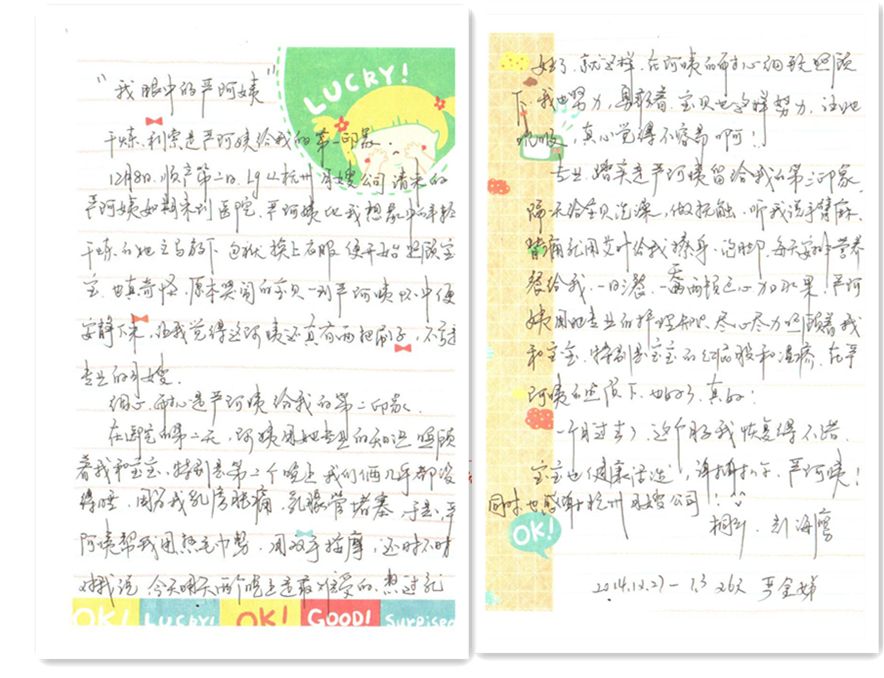 LUCKY!
"我眼中的严阿姨"
干炼、利索是严阿姨给我的第一印象.
12月8日, 顺产第二日, 杭州月嫂公司请来的
严阿姨如期来到医院. 严阿姨比我想象中的年轻
干炼. 她立马放下包袱 换上衣服 便开始照顾宝
宝. 也真奇怪, 原本哭闹的宝贝一到严阿姨手中便
安静下来, 让我觉得这阿姨还真有两把刷子, 不亏是
专业的月嫂.
细心、耐心是严阿姨给我的第二印象.
在医院的第二天, 阿姨用她专业的知识照顾
着我和宝宝. 特别是第二个晚上 我们俩几乎都没
得睡, 因为我乳房胀痛, 乳腺管堵塞 于是, 严
阿姨帮我用热毛巾敷, 用双手按摩, 还时不时
对我说 今天明天两个晚上是最难受的. 想过
OK! LUCKY! OK! GOOD! Surprised
好了. 就这样, 在阿姨的耐心细致照顾
下. 我也努力, 宝贝也这样努力,
真心觉得不容易啊!
专业、踏实是严阿姨留给我的第三印象
隔天给宝贝洗澡, 做抚触. 听我说手臂麻.
背痛就用艾叶给我擦身. 泡脚. 每天安排营养
餐给我, 一日餐. 一天两顿点心加水果. 严阿
姨用她专业的护理知识 尽心尽力照顾着我
和宝宝. 特别是宝宝的红屁股和湿疹, 在严
阿姨的 下. 也好了. 真的!
一个月过去了 这个月子我恢复得不错.
宝宝也健康活泼, 谢谢你了, 严阿姨!
同时也感谢杭州月嫂公司!
OK!
2014.12.27-1.3 26天 严金娣